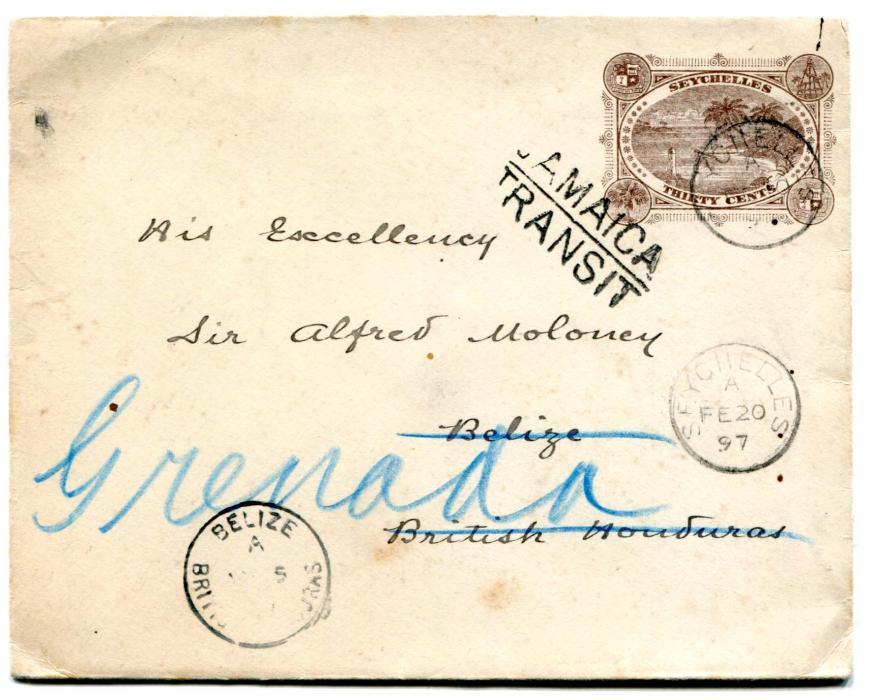 SEYCHELLES
THIRTY CENTS
JAMAICA
TRANSIT
His Excellency
Sir Alfred Moloney
SEYCHELLES
A
FE 20
97
Belize
Grenada
British Honduras
BELIZE
A
5